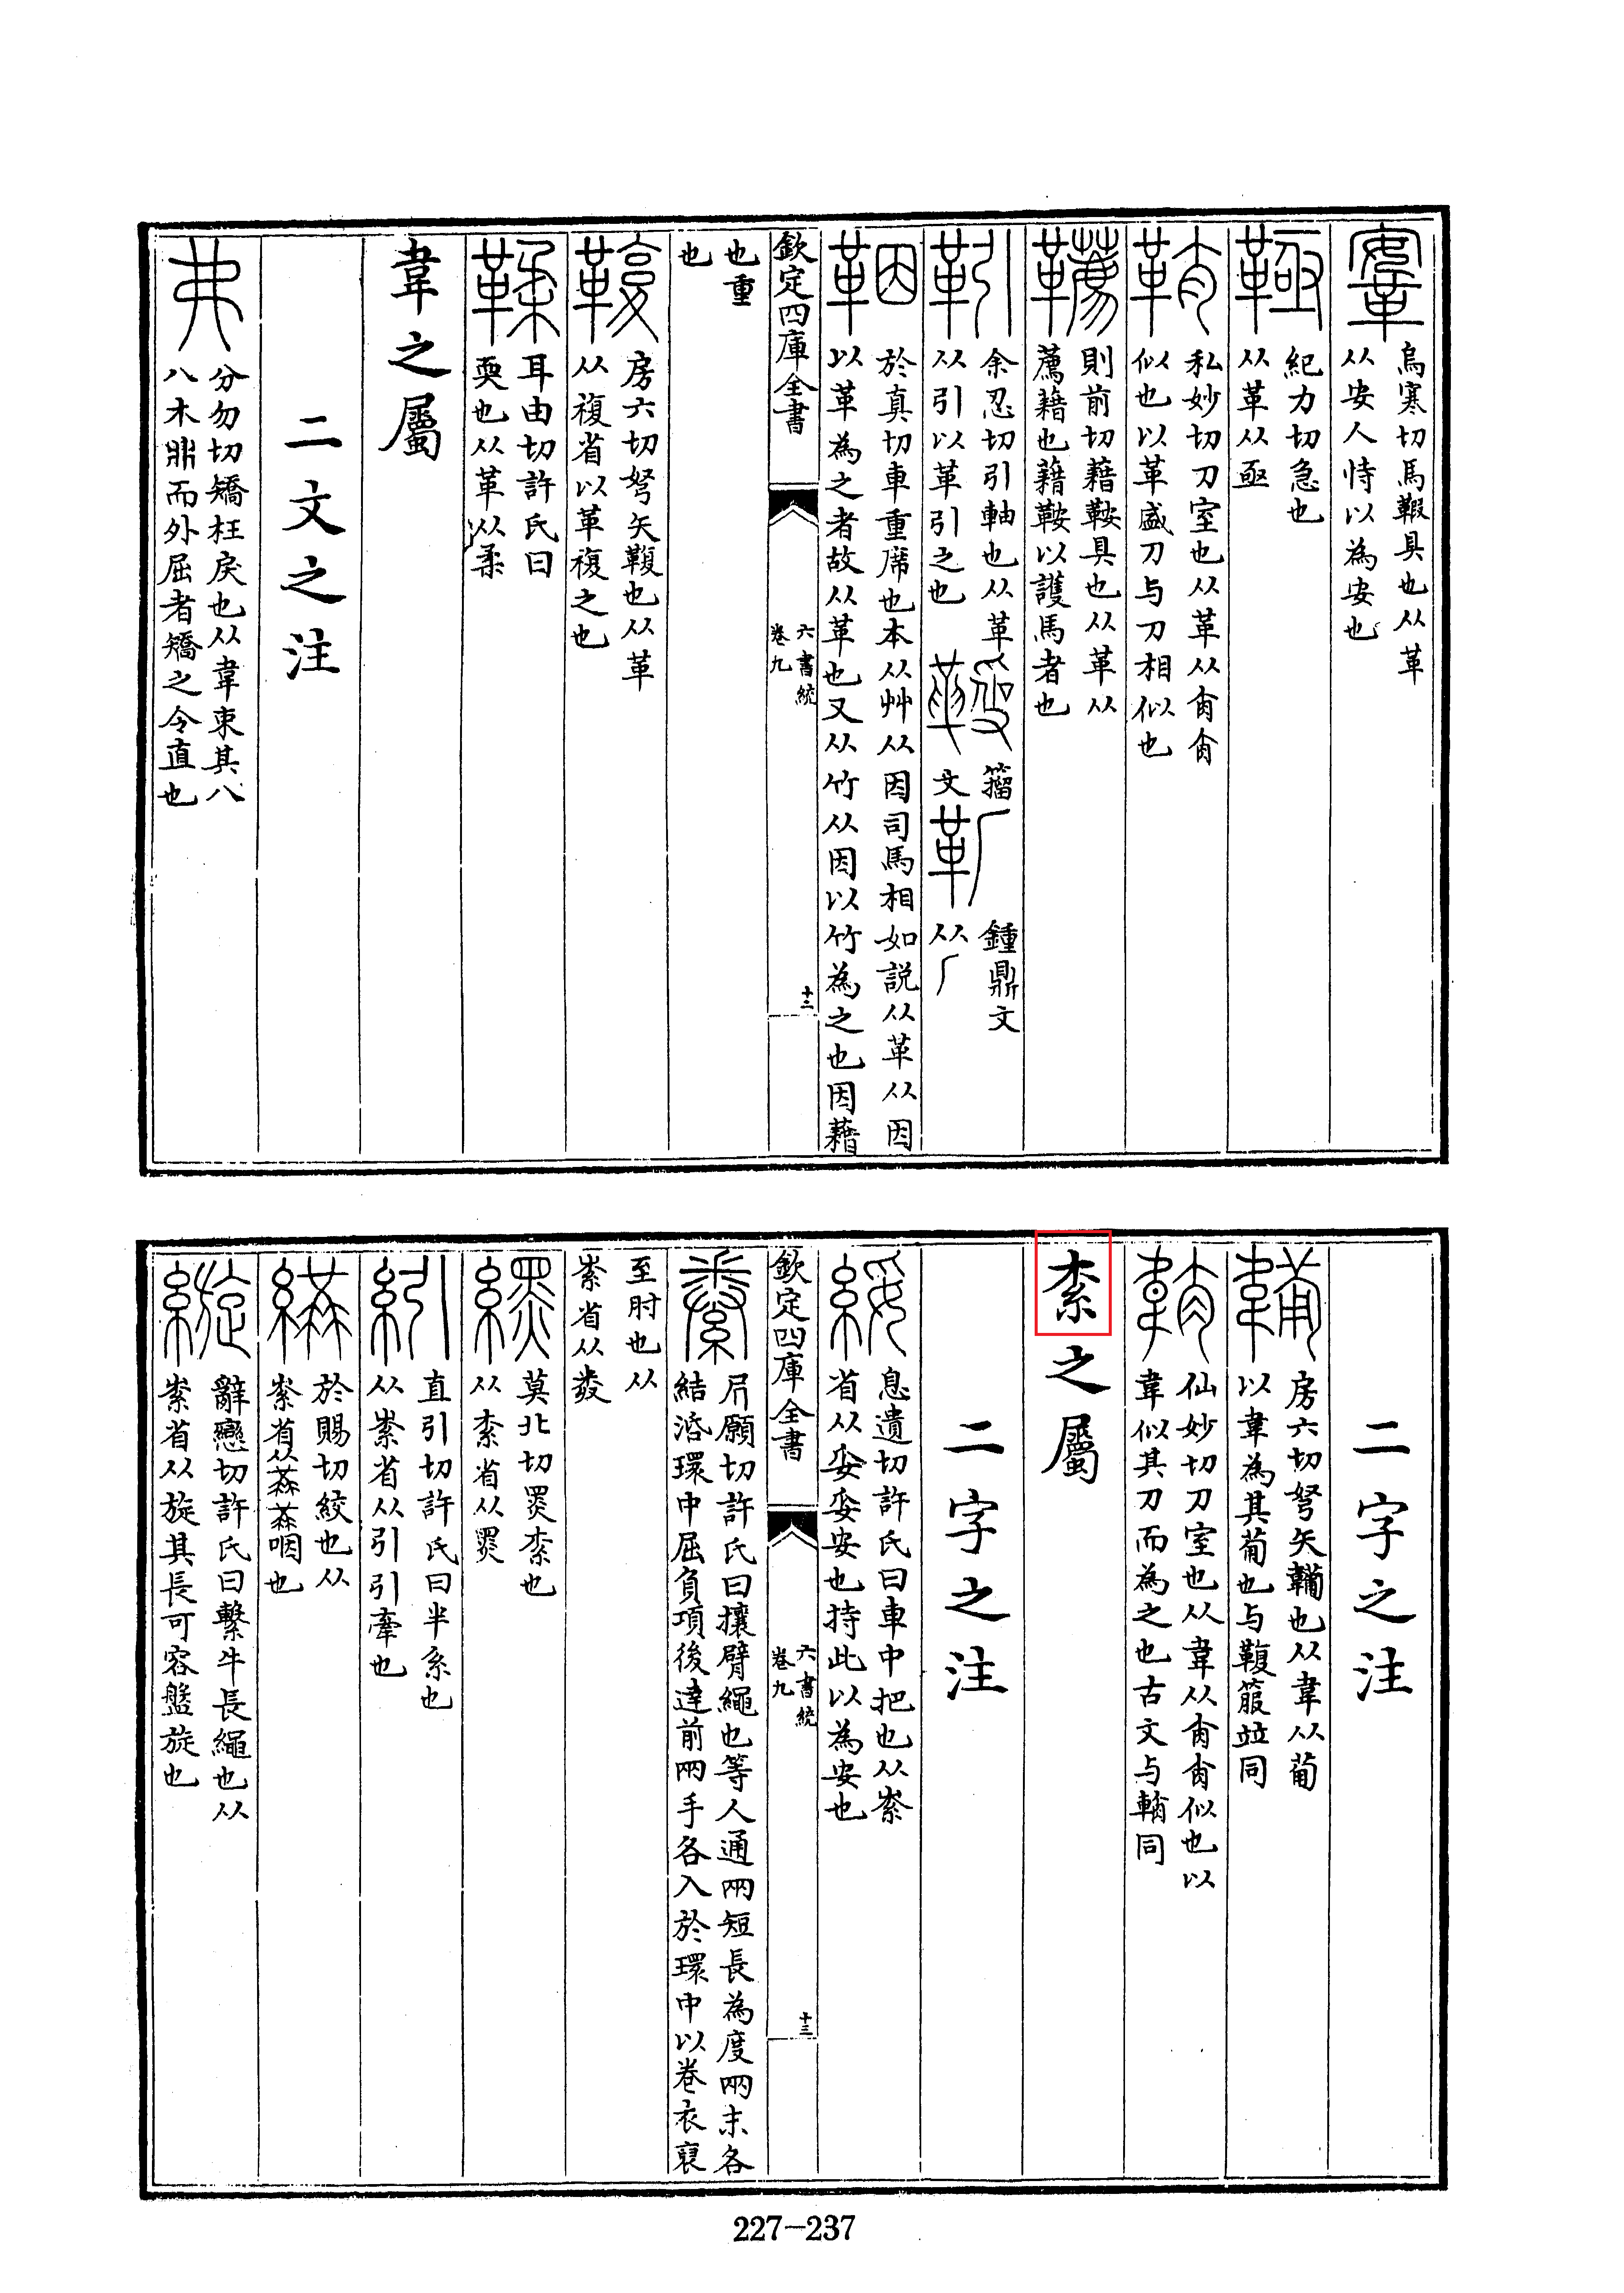 烏寒切馬鞁具也从革
从安人恃以為安也
紀力切急也
从革从亟
私妙切刀室也从革从肯肯
似也以革盛刀与刀相似也
則前切藉鞍具也从革从
薦藉也藉鞍以護馬者也
余忍切引軸也从革
从引以革引之也
籀
文
鍾鼎文
从厂
於真切車重席也本从艸从因司馬相如説从革从因
以革為之者故从革也又从竹从因以竹為之也因藉
欽定四庫全書
六書統
卷九
十二
也重
也
房六切弩矢鞴也从革
从複省以革複之也
耳由切許氏曰
耎也从革从柔
韋之屬
二文之注
分勿切矯枉戾也从韋束其八
八木鼎而外屈者矯之令直也
二字之注
房六切弩矢鞴也从韋从葡
以韋為其葡也与鞴箙竝同
仙妙切刀室也从韋从肯肯似也以
韋似其刀而為之也古文与鞘同
索之屬
二字之注
息遺切許氏曰車中把也从索
省从妥妥安也持此以為安也
欽定四庫全書
六書統
卷九
十三
居願切許氏曰攘臂繩也等人通兩短長為度兩末各
結浯環中屈負項後達前兩手各入於環中以卷衣裒
至肘也从
索省从𢍏
莫北切罬索也
从索省从罬
直引切許氏曰半系也
从索省从引引牽也
於賜切絞也从
索省从𦱔𦱔咽也
辭戀切許氏曰繫牛長繩也从
索省从旋其長可容盤旋也
227-237